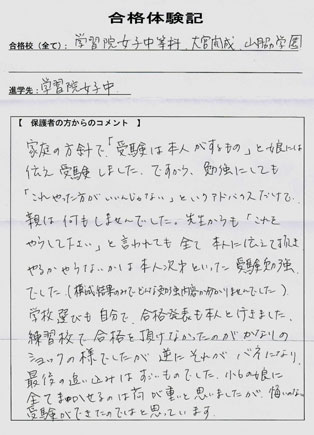 合格体験記
合格校(全て): 学習院女子中等科、大宮開成、山脇学園
進学先: 学習院女子中
【 保護者の方からのコメント 】
家庭の方針で、「受験は本人がするもの」と娘には
伝え受験しました。ですから、勉強にしても
「これやった方がいいんじゃない」というアドバイスだけで、
親は何もしませんでした。先生からも「これを
やらしてたよい」と言われても全て本人に伝えて
やるかやらないかは本人次第といった受験勉強
でした(構成結果のみでどんな勉強内容か分かりませんでした)。
学校選びも自分で、合格発表も本人と行きました。
練習校で合格を頂けなかったのがかなりの
ショックの様でしたが逆にそれがバネになり、
最後の追い込みはすごいものでした。小6の娘に
全てまかせるのは荷が重いと思いましたが、悔いのない
受験ができたのではと思っています。